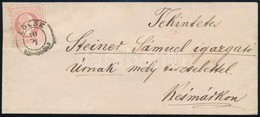 Tekintetes
Steiner Sámuel igazgató
Úrnak mély tisztelettel
Késmárkon
10
7